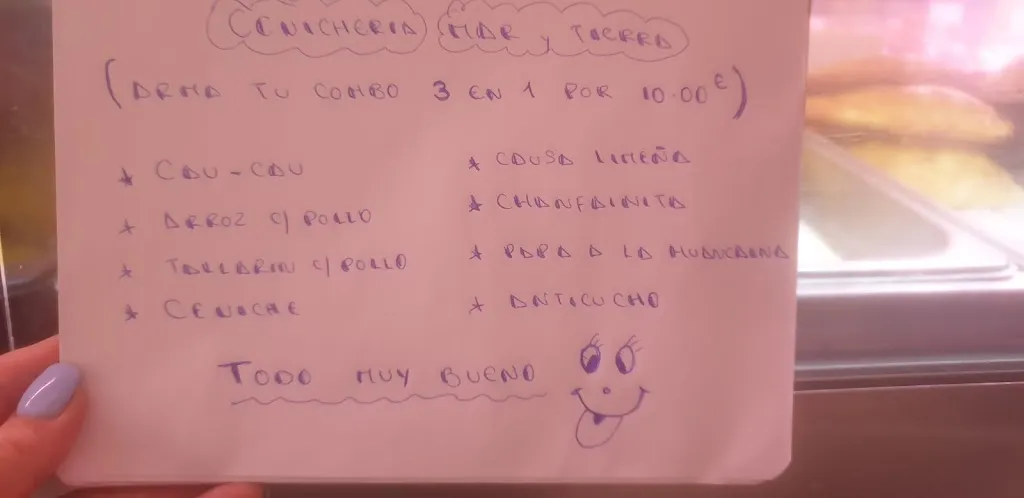 CEVICHERIA MAR y TIERRA
(ARMA TU COMBO 3 EN 1 POR 10.00€)
* CAU-CAU
* ARROZ c/ POLLO
* TALLARIN c/ POLLO
* CEVICHE
* CAUSA LIMEÑA
* CHANFAINITA
* PAPA A LA HUANCAINA
* ANTICUCHO
TODO MUY BUENO